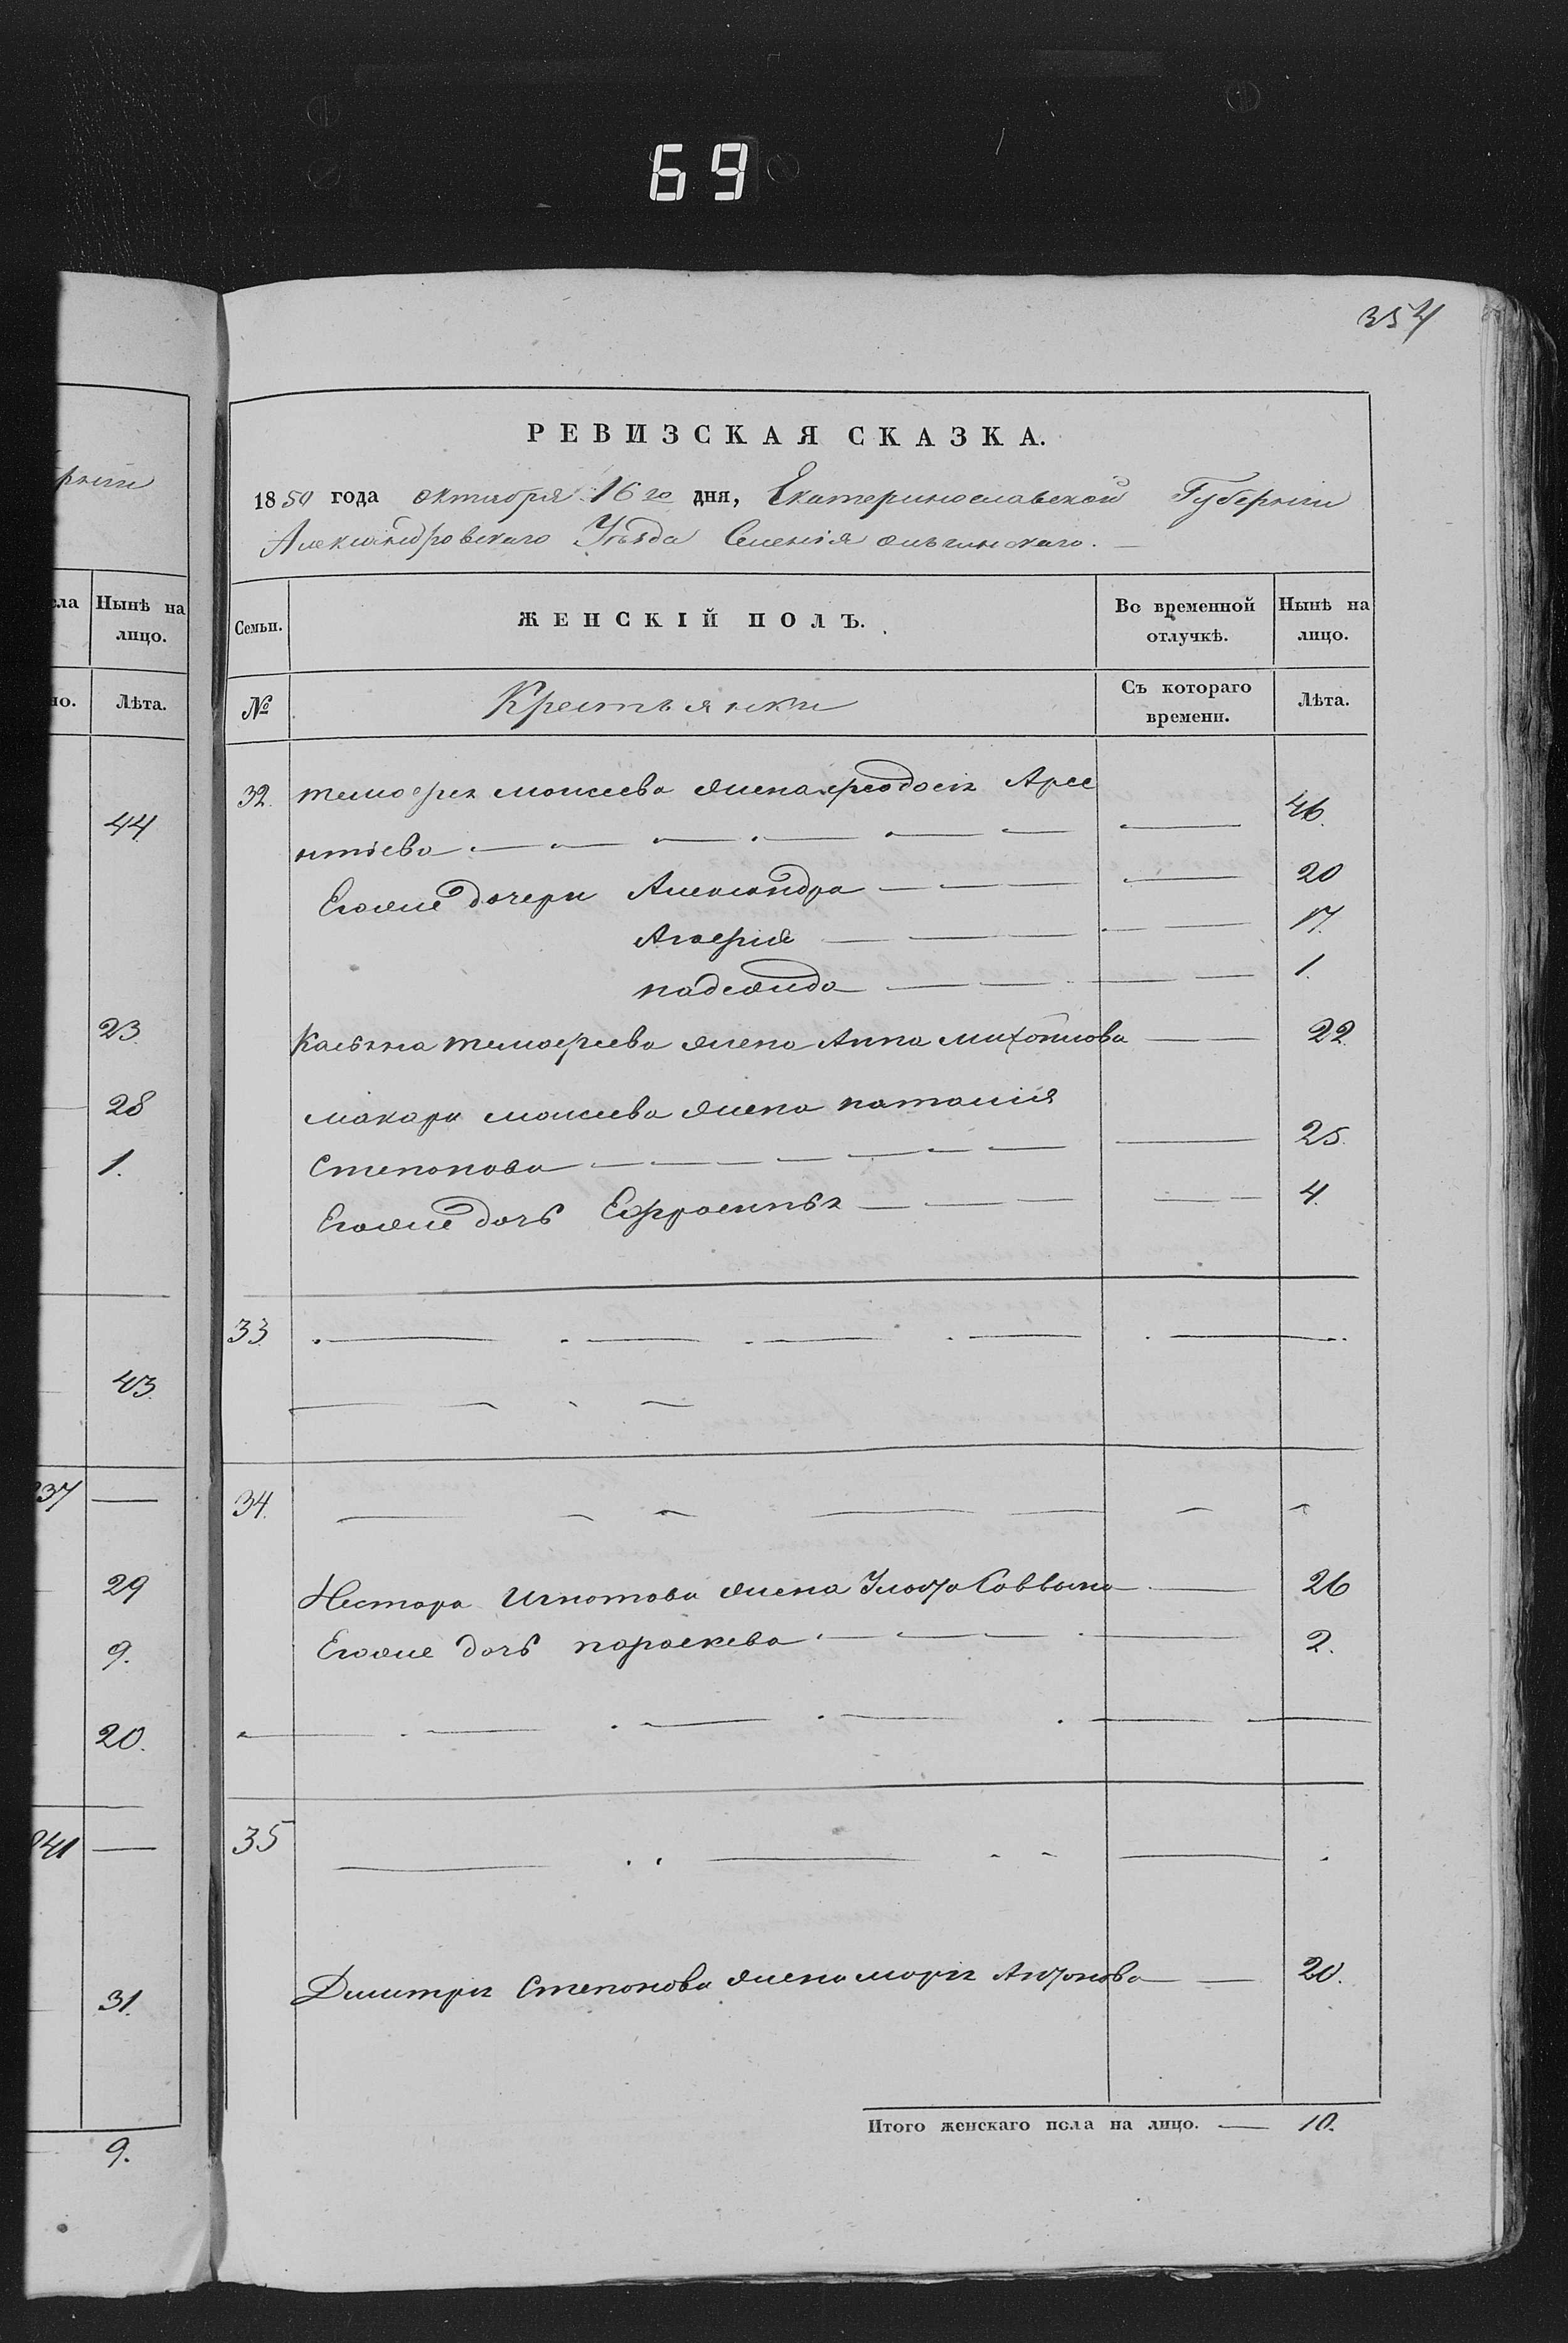 69
354
РЕВИЗСКАЯ СКАЗКА.
1850 года октября 16го дня, Екатеринославской Губерніи
Александровскаго Уѣзда Селенія
Семьи.
ЖЕНСКІЙ ПОЛЪ.
Во временной отлучкѣ.
Нынѣ на лицо.
№
Крестьянки
Съ котораго времени.
Лѣта.
32. тимофея моисеева жена феодосія Арсе
нтіева 46.
Егоже дочери Александра 20
17.
надежда 1.
Касьяна тимофеева жена Анна михайлова 22
макара моисеева жена наталія
степанова 25.
Егоже дочь Ефросинья 4.
33
34.
Нестора игнатова жена Саввына 26
Егоже дочь параскева 2.
35
Димитрія степанова жена марія 20.
Итого женскаго пола на лицо. — 10.
рніи
ла
Нынѣ на лицо.
но.
Лѣта.
44
23
28
1.
43.
37 —
29
9.
20.
841 —
31.
9.